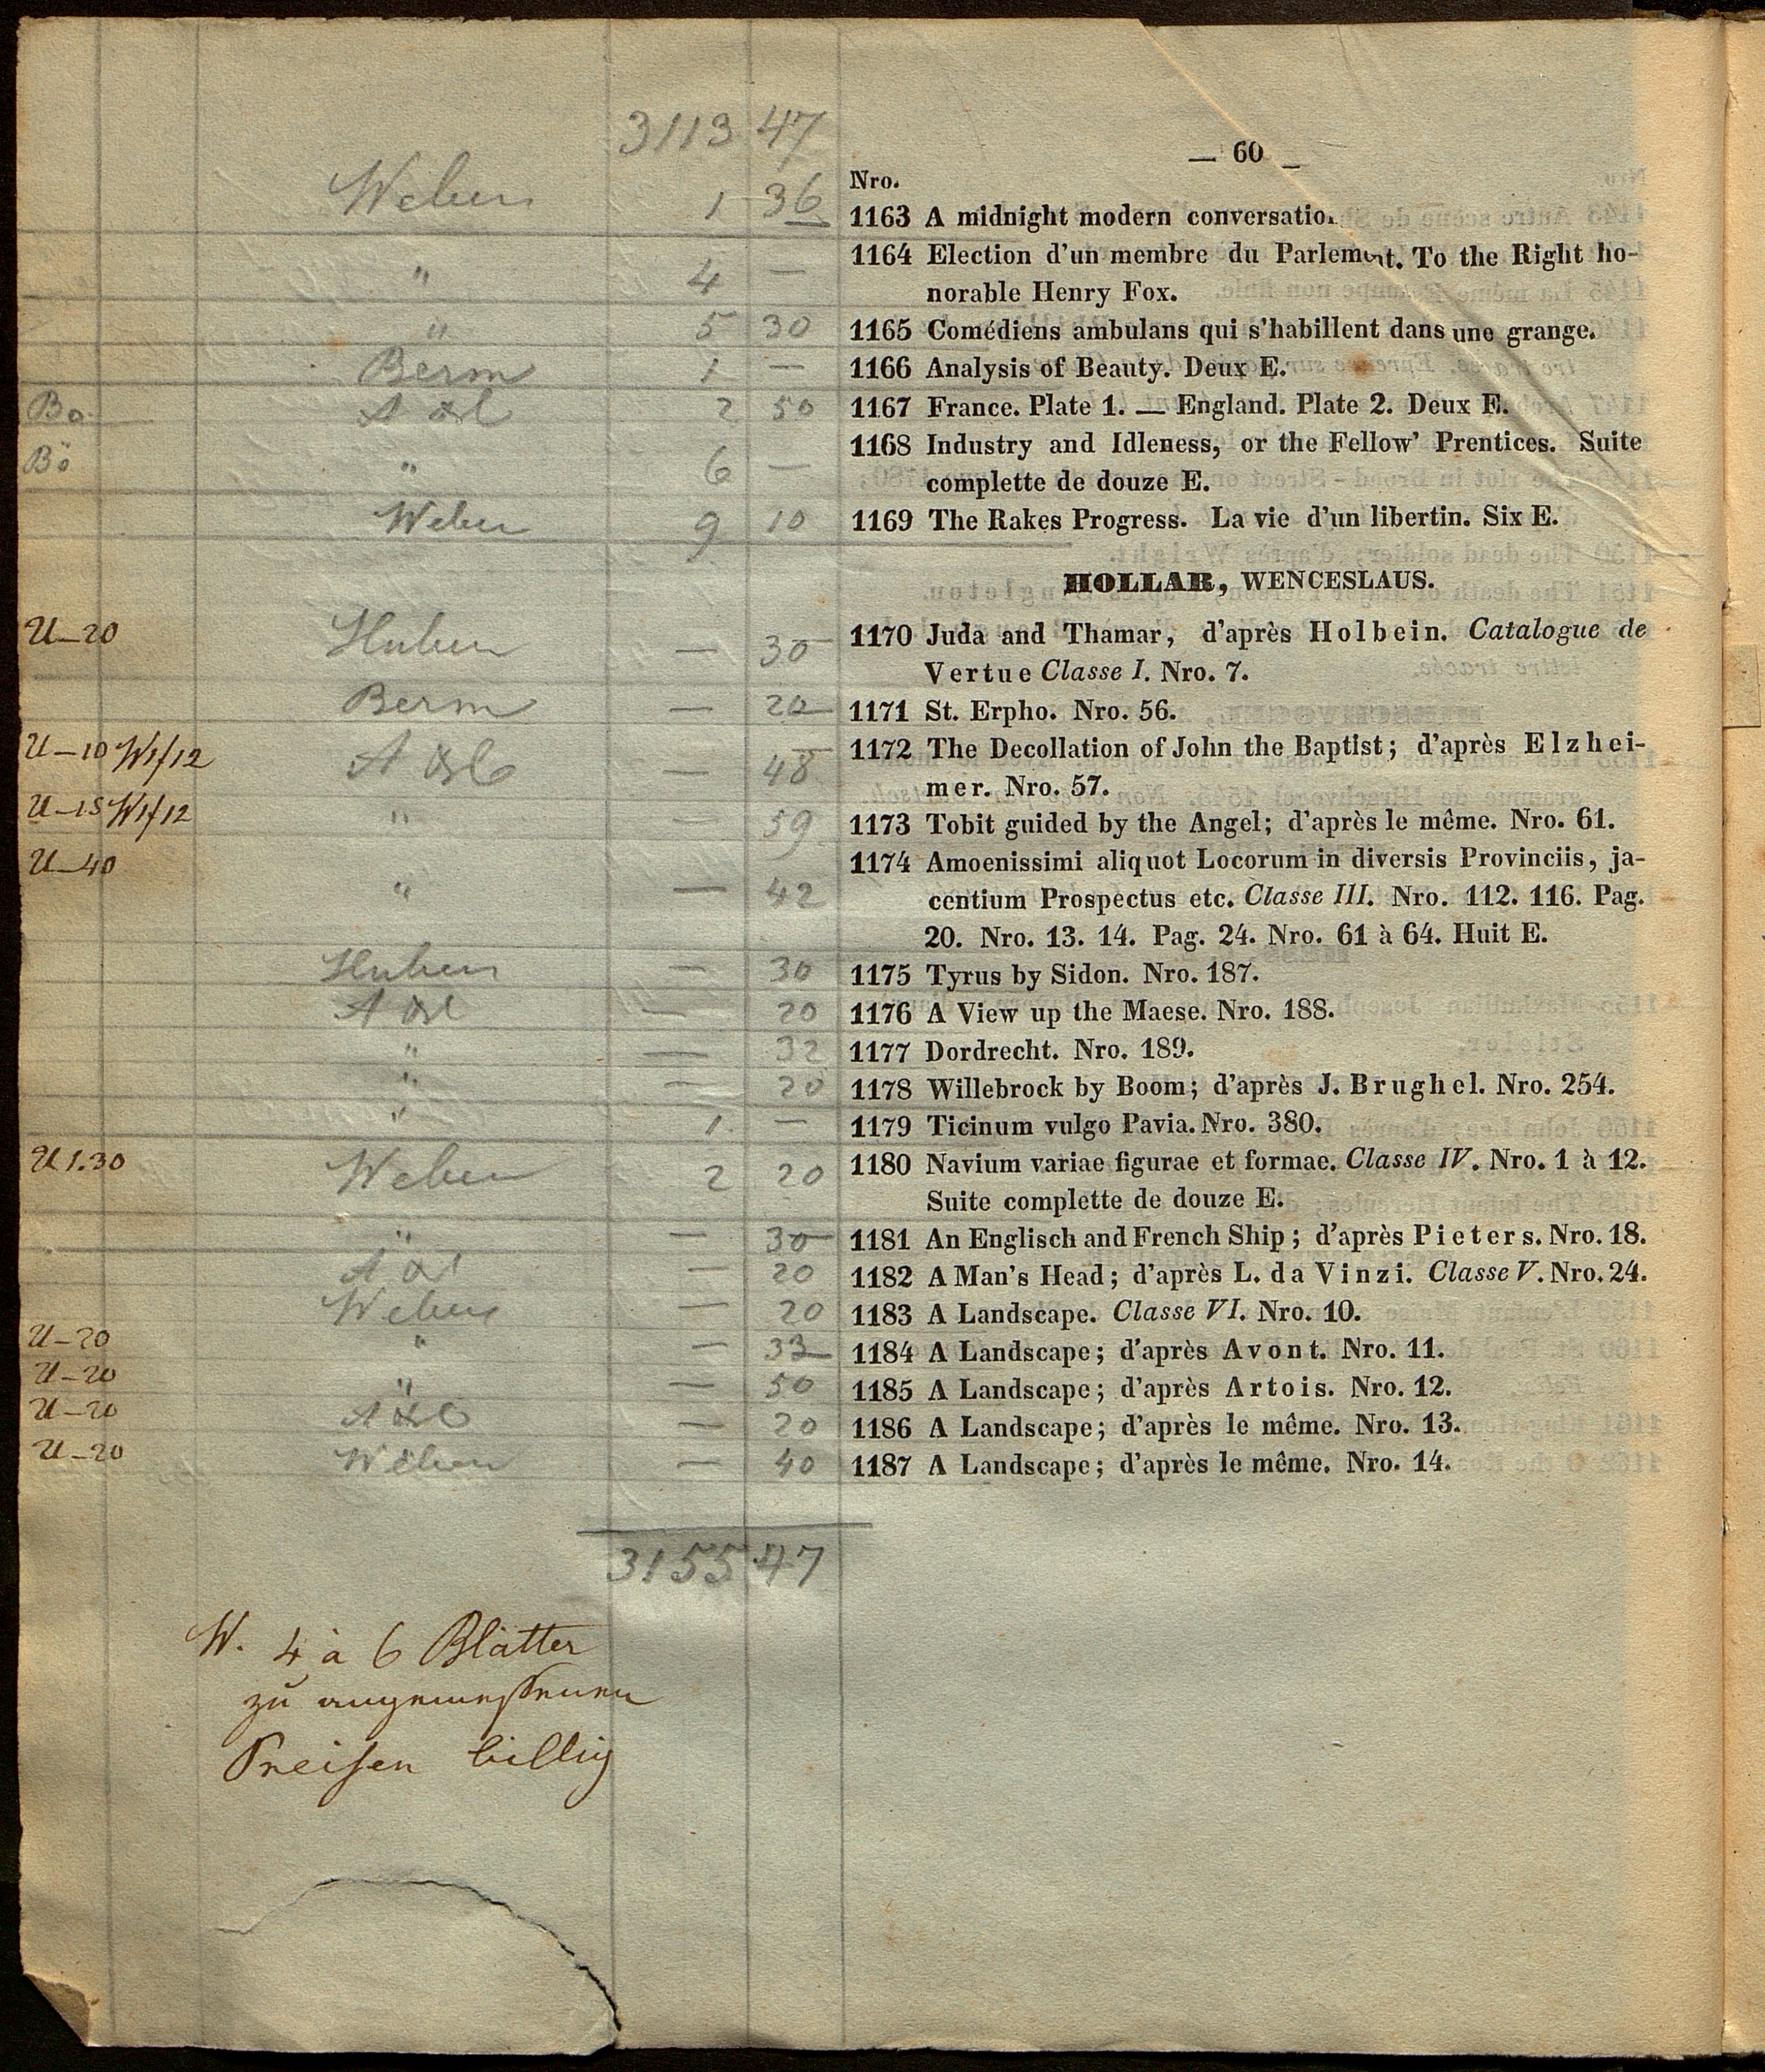 3113 47
— 60 —
Nro.
Weber 1 36 1163 A midnight modern conversation
" 4 — 1164 Election d'un membre du Parlement. To the Right ho-
norable Henry Fox.
" 5 30 1165 Comédiens ambulans qui s'habillent dans une grange.
Berm 1 — 1166 Analysis of Beauty. Deux E.
Bö 2 50 1167 France. Plate 1. — England. Plate 2. Deux E.
Bö " 6 — 1168 Industry and Idleness, or the Fellow' Prentices. Suite
complette de douze E.
Weber 9 10 1169 The Rakes Progress. La vie d'un libertin. Six E.
HOLLAR, WENCESLAUS.
U—20 Huber — 30 1170 Juda and Thamar, d'après Holbein. Catalogue de
Vertue Classe I. Nro. 7.
Berm — 20 1171 St. Erpho. Nro. 56.
U—10 W1f12 — 48 1172 The Decollation of John the Baptist; d'après Elzhei-
mer. Nro. 57.
U—15 W1f12 " — 59 1173 Tobit guided by the Angel; d'après le même. Nro. 61.
U—40 " — 42 1174 Amoenissimi aliquot Locorum in diversis Provinciis, ja-
centium Prospectus etc. Classe III. Nro. 112. 116. Pag.
20. Nro. 13. 14. Pag. 24. Nro. 61 à 64. Huit E.
Huber — 30 1175 Tyrus by Sidon. Nro. 187.
— 20 1176 A View up the Maese. Nro. 188.
" — 32 1177 Dordrecht. Nro. 189.
" — 20 1178 Willebrock by Boom; d'après J. Brughel. Nro. 254.
" 1 — 1179 Ticinum vulgo Pavia. Nro. 380.
U 1.30 Weber 2 20 1180 Navium variae figurae et formae. Classe IV. Nro. 1 à 12.
Suite complette de douze E.
" — 30 1181 An Englisch and French Ship; d'après Pieters. Nro. 18.
— 20 1182 A Man's Head; d'après L. da Vinzi. Classe V. Nro. 24.
Weber — 20 1183 A Landscape. Classe VI. Nro. 10.
U—20 " — 33 1184 A Landscape; d'après Avont. Nro. 11.
U—20 " — 50 1185 A Landscape; d'après Artois. Nro. 12.
U—20 — 20 1186 A Landscape; d'après le même. Nro. 13.
U—20 Weber — 40 1187 A Landscape; d'après le même. Nro. 14.
3155 47
W. 4 à 6 Blätter
zu angemessenen
Preisen billig